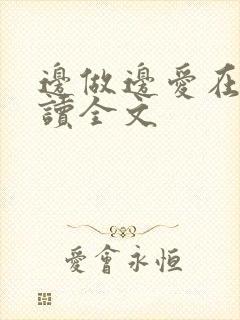 邊做邊愛在
讀全文
愛會永恒